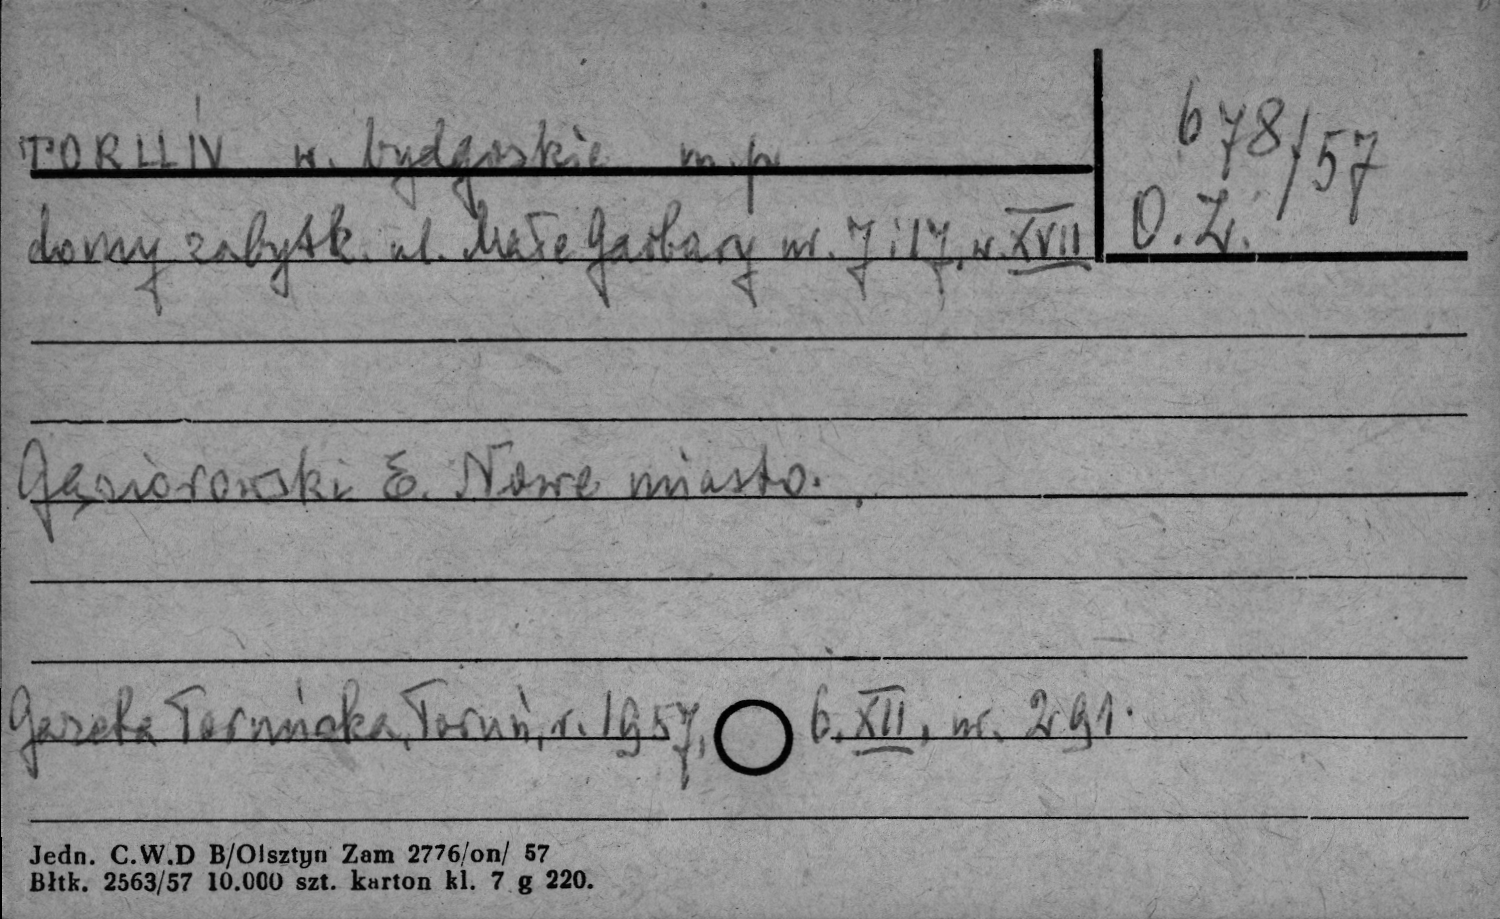 TORUŃ w. bydgoskie m. p.
678/57
domy zabytk. ul. Małe Garbary nr. 7 i 17, w. XVII
O. Z.
Gąsiorowski E. Nowe miasto.
Gazeta Toruńska, Toruń, r. 1957, 6. XII, nr. 291.
Jedn. C.W.D B/Olsztyn Zam 2776/on/ 57
Błtk. 2563/57 10.000 szt. karton kl. 7 g 220.